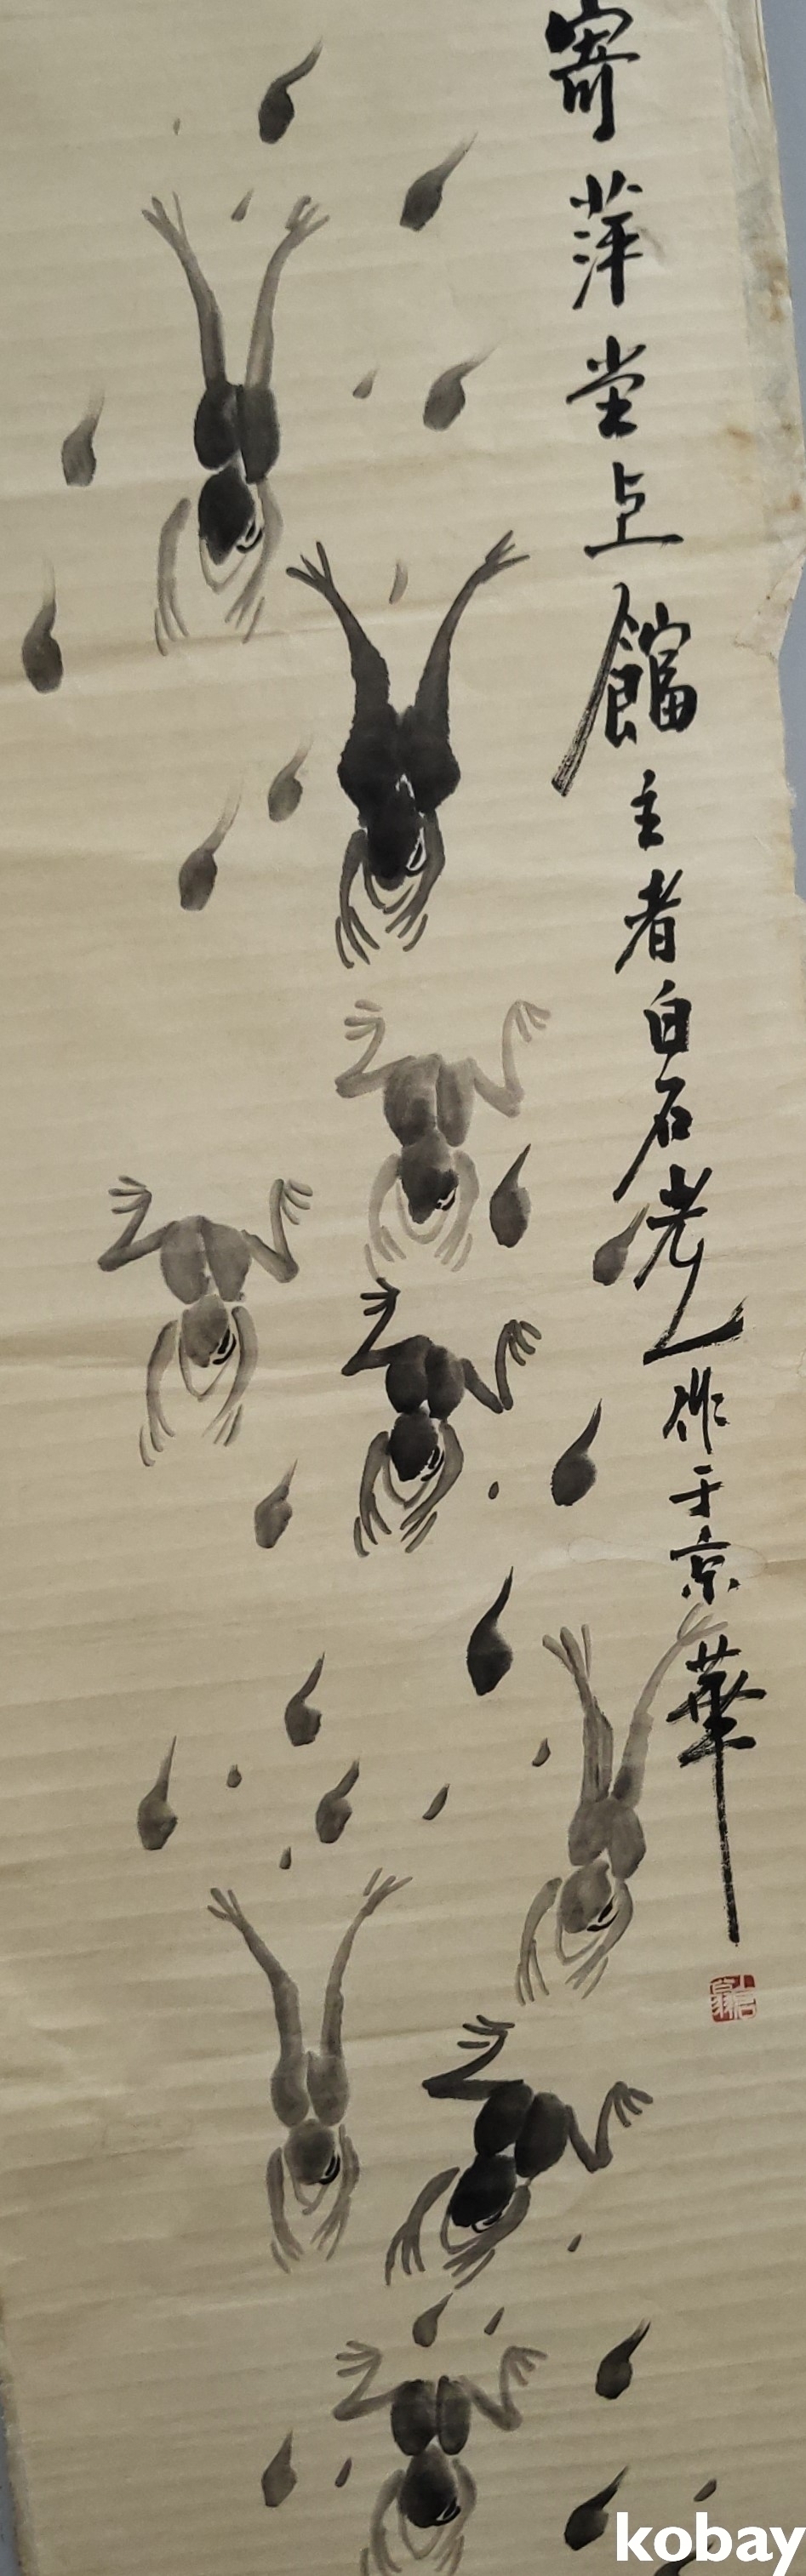 寄萍堂館主者白石老作于京華
kobay